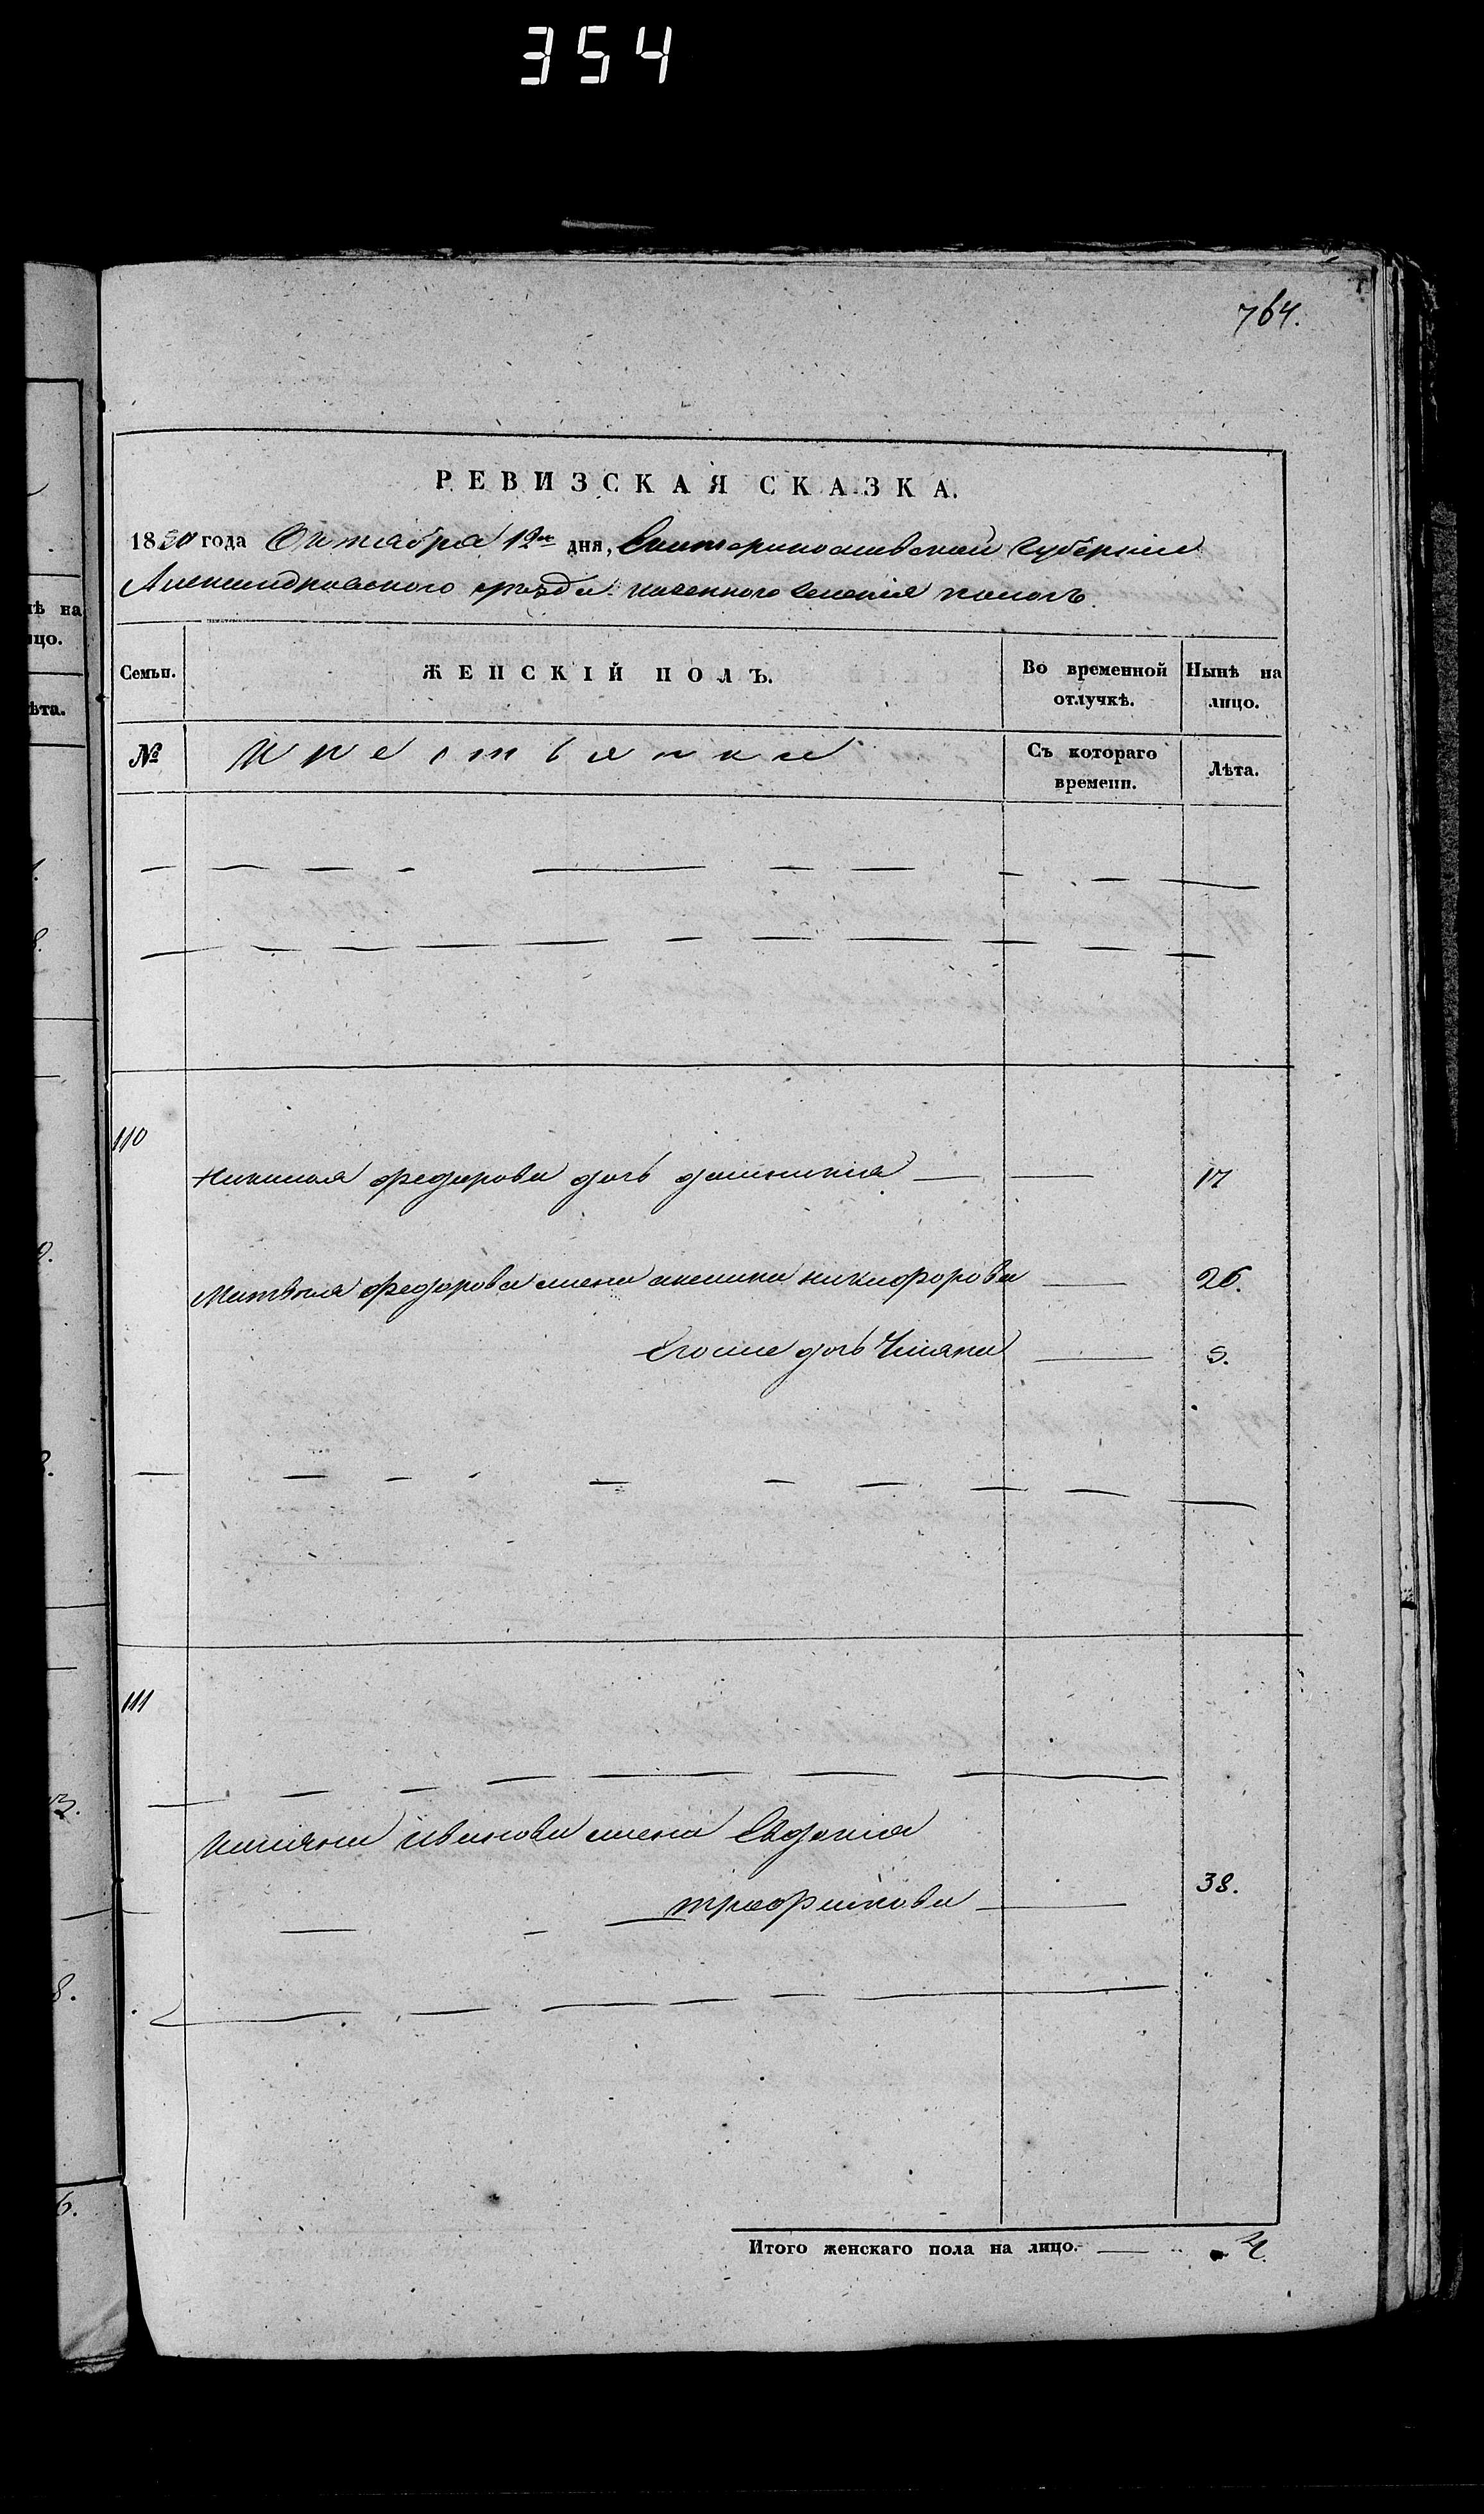 354
764.
РЕВИЗСКАЯ СКАЗКА.
1850 года Октября 12го дня, Екатеринославской губернии
Александровского уезда казенного селения
Семьи.
ЖЕНСКІЙ ПОЛЪ.
Во временной отлучкѣ.
Нынѣ на лицо.
№
Крестьянки
Съ котораго времени.
Лѣта.
110
федорова дочь 17
Матвея федорова жена никифорова 26.
Егоже дочь Ульяна 5.
111
Иванова жена Евдокия
трофимова 38.
Итого женскаго пола на лицо. 4.
нѣ на
лицо.
Лѣта.